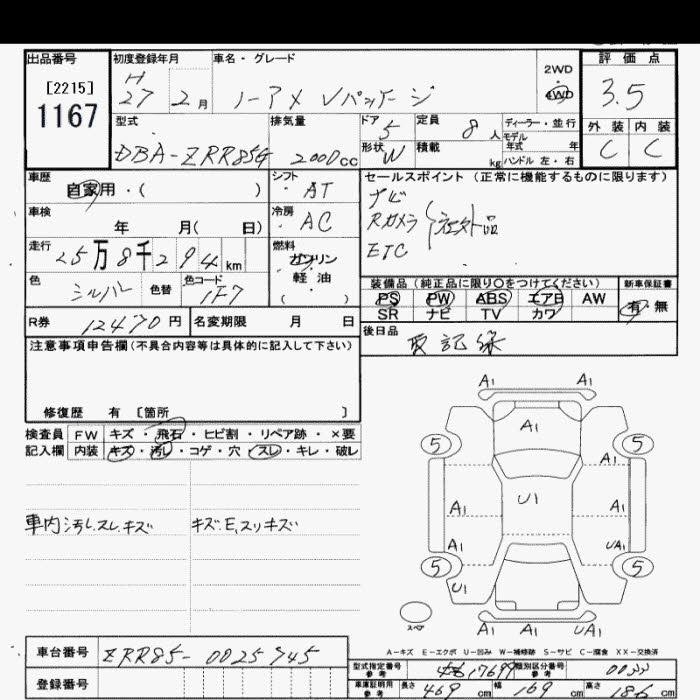 出品番号
[2215]
1167
初度登録年月
H
27 2月
車名・グレード
ノーアメVパッケージ
2WD
4WD
評価点
3.5
型式
DBA-ZRR85G
排気量
2000cc
ドア
5
定員
8人
ディーラー・並行
モデル
年式 年
形状
W
積載
kg
ハンドル 左・右
外装 内装
C C
車歴
自家用・( )
シフト
AT
セールスポイント (正常に機能するものに限ります)
ナビ
Rカメラ 社外品
ETC
車検
年 月( 日)
冷房
AC
走行
25万8千294km
燃料
ガソリン
・
軽油
( )
色
シルバー
色替
色コード
1F7
装備品 (純正品に限り○をつけてください)
新車保証書
PS PW ABS エアB AW
有・無
SR ナビ TV カワ
R券
12470円
名変期限 月 日
後日品
取記録
注意事項申告欄(不具合内容等は具体的に記入して下さい)
修復歴 有 〔箇所 〕
検査員 FW キズ・飛石・ヒビ割・リペア跡・×要
記入欄 内装 キズ・汚レ・コゲ・穴・スレ・キレ・破レ
車内汚レ、スレ、キズ
キズ・E、スリキズ
A1 A1
A1
5 5
A1
U1
A1 A1
A1 UA1
5 5
U1
スペア
A1 A1 UA1
A-キズ E-エクボ U-凹み W-補修跡 S-サビ C-腐食 XX-交換済
車台番号
ZRR85-0025945
登録番号
型式指定番号
参考
類別区分番号
参考
車庫証明用
参考
長さ 469cm 幅 169cm 高さ 186cm